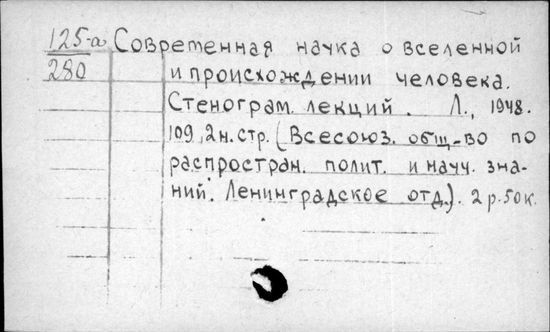 125-а Современная наука о вселенной
280 и происхождении человека.
Стенограм. лекций. Л., 1948.
109, 2 н. стр. (Всесоюз. общ-во по
распростран. полит. и науч. зна-
ний. Ленинградское отд.). 2 р. 50 к.